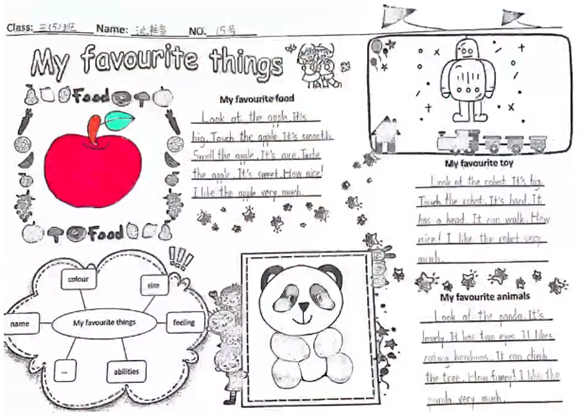 Class: 三(5)班 Name: NO. 15号
My favourite things
Food
My favourite food
Look at the apple. It's
big. Touch the apple. It's smooth.
Smell the apple. It's nice. Taste
the apple. It's sweet. How nice!
I like the apple very much.
Food
My favourite toy
Look at the robot. It's big.
Touch the robot. It's hard. It
has a head. It can walk. How
nice! I like the robot very
much.
colour
size
name
My favourite things
feeling
...
abilities
My favourite animals
Look at the panda. It's
lovely. It has two eyes. It likes
eating bamboos. It can climb
the tree. How funny! I like the
panda very much.